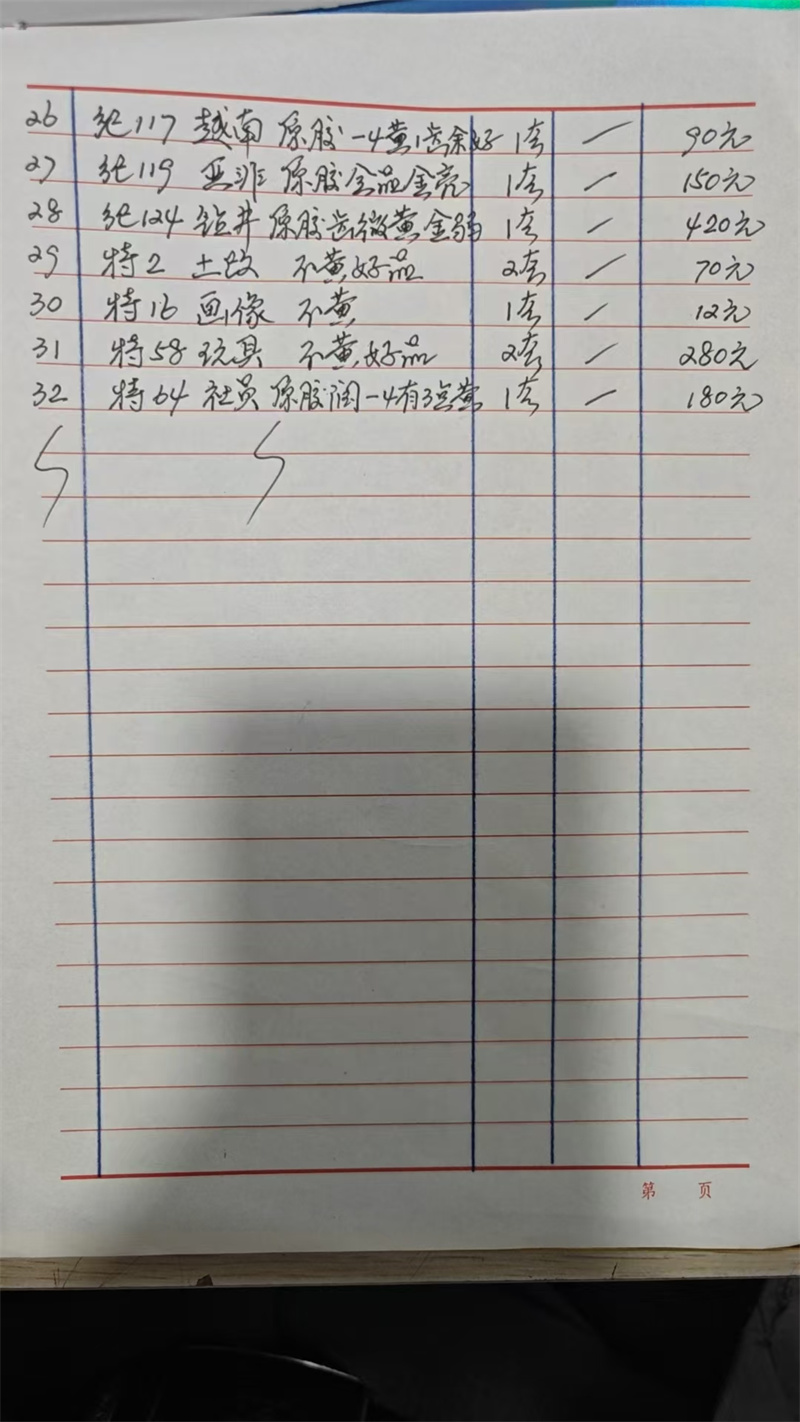 26 纪117 越南 原胶一4黄1齿余好 1套 / 90元
27 纪119 亚非 原胶全品金亮 1套 / 150元
28 纪124 钻井 原胶齿微黄金弱 1套 / 420元
29 特2 土改 不黄好品 2套 / 70元
30 特16 画像 不黄 1套 / 12元
31 特58 玩具 不黄好品 2套 / 280元
32 特64 社员 原胶润一4有3点黄 1套 / 180元
第 页